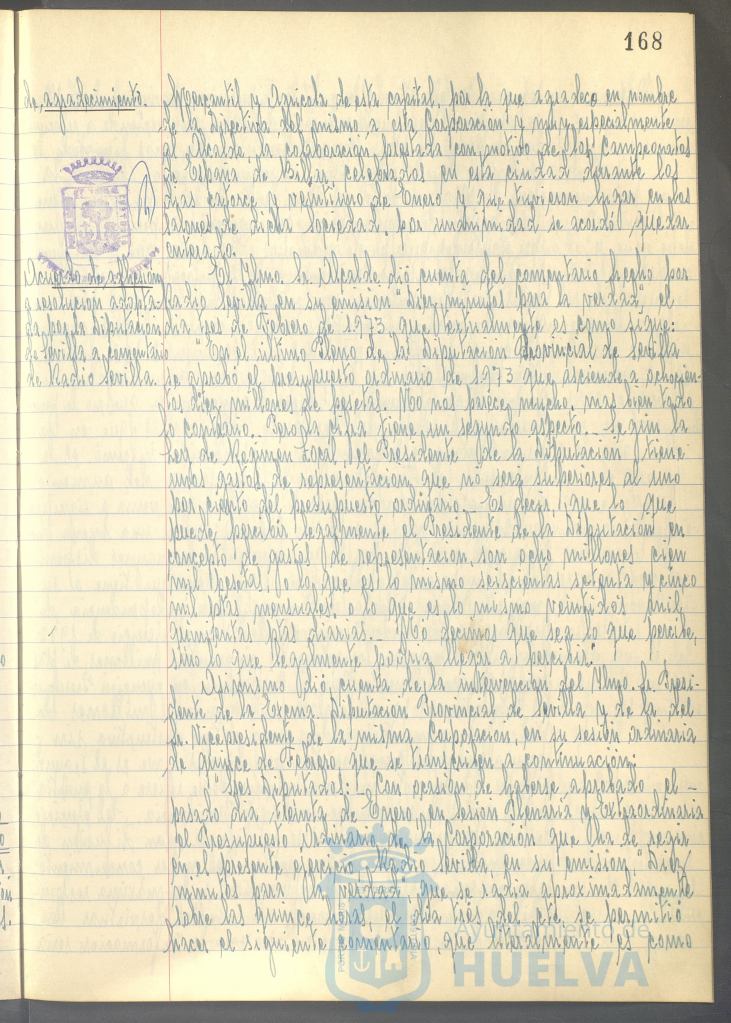 168
de agradecimiento.
Mercantil y Agricola de esta capital, por la que agradece en nombre
de la Directiva del mismo a esta Corporacion y muy especialmente
al Alcalde, la colaboracion prestada con motivo de los Campeonatos
de España de Billar, celebrados en esta ciudad durante los
dias catorce y veintiuno de Enero y que tuvieron lugar en los
salones de dicha Sociedad, por unanimidad se acordó quedar
enterado.
Acuerdo de adhesion
a resolucion adopta-
da por la Diputacion
de Sevilla a comentario
de Radio Sevilla.
El Ilmo. Sr. Alcalde dió cuenta del comentario hecho por
Radio Sevilla en su emision "Diez minutos para la verdad" el
dia tres de Febrero de 1.973, que textualmente es como sigue:
"En el ultimo Pleno de la Diputacion Provincial de Sevilla
se aprobó el presupuesto ordinario de 1.973 que asciende a ochocien-
tos diez millones de pesetas. No nos parece mucho, mas bien todo
lo contrario. Pero la cifra tiene un segundo aspecto.- Segun la
Ley de Regimen Local, el Presidente de la Diputacion tiene
unos gastos de representacion que no sera superiores al uno
por ciento del presupuesto ordinario.- Es decir, que lo que
puede percibir legalmente el Presidente de la Diputacion en
concepto de gastos de representacion, son ocho millones cien
mil pesetas, o lo que es lo mismo seiscientas setenta y cinco
mil ptas mensuales, o lo que es lo mismo veintidos mil
quinientas ptas diarias.- No decimos que sea lo que percibe,
sino lo que legalmente podria llegar a percibir."
Asimismo dió cuenta de la intervencion del Ilmo. Sr. Presi-
dente de la Excma. Diputacion Provincial de Sevilla y de la del
Sr. Vicepresidente de la misma Corporacion, en su sesion ordinaria
de quince de Febrero, que se transcriben a continuacion:
"Sres Diputados:- Con ocasion de haberse aprobado el -
pasado dia treinta de Enero, en sesion Plenaria y Extraordinaria
el Presupuesto Ordinario de la Corporacion que ha de regir
en el presente ejercicio, Radio Sevilla, en su emision, "Diez
minutos para la verdad", que se radia aproximadamente
sobre las quince horas, el dia tres del cte, se permitió
hacer el siguiente comentario, que literalmente es como
Ayuntamiento de
HUELVA